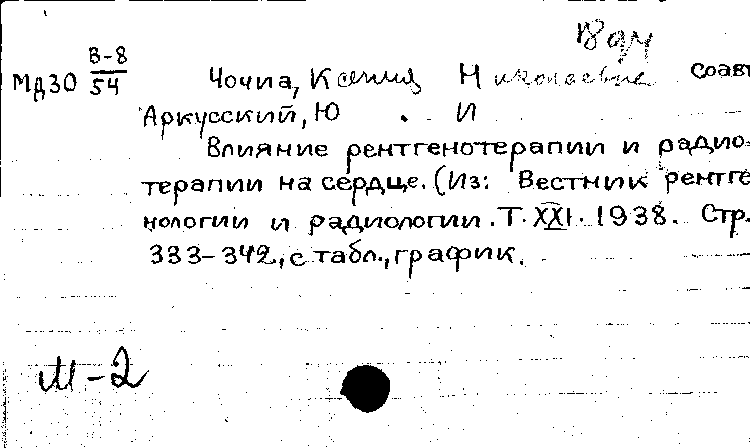 В-8
МдЗО 54 Чочиа, Ксения Николаевна соавт
Аркусский, Ю . И
Влияние рентгенотерапии и радио-
терапии на сердце. (Из: Вестник рентге
нологии и радиологии. Т. XXI. 1938. Стр.
333-342, с табл., график.
М-2